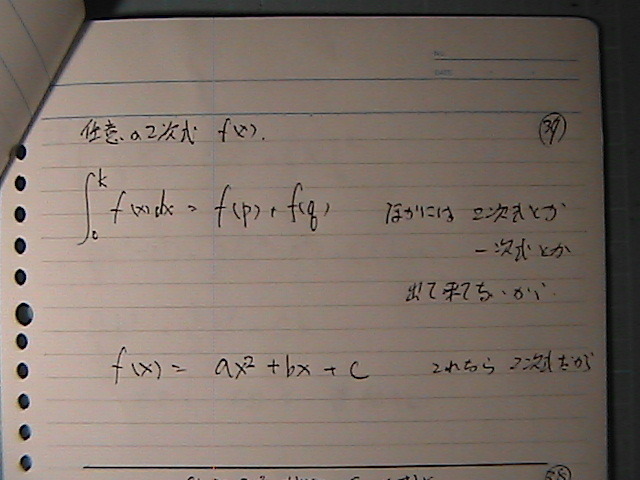 NO.
DATE
任意の2次式 f(x). 39
∫₀ᵏ f(x)dx = f(p) + f(q) ほかには 2次式とか
一次式とか
出て来て
f(x) = ax² + bx + c 2次式だが
58